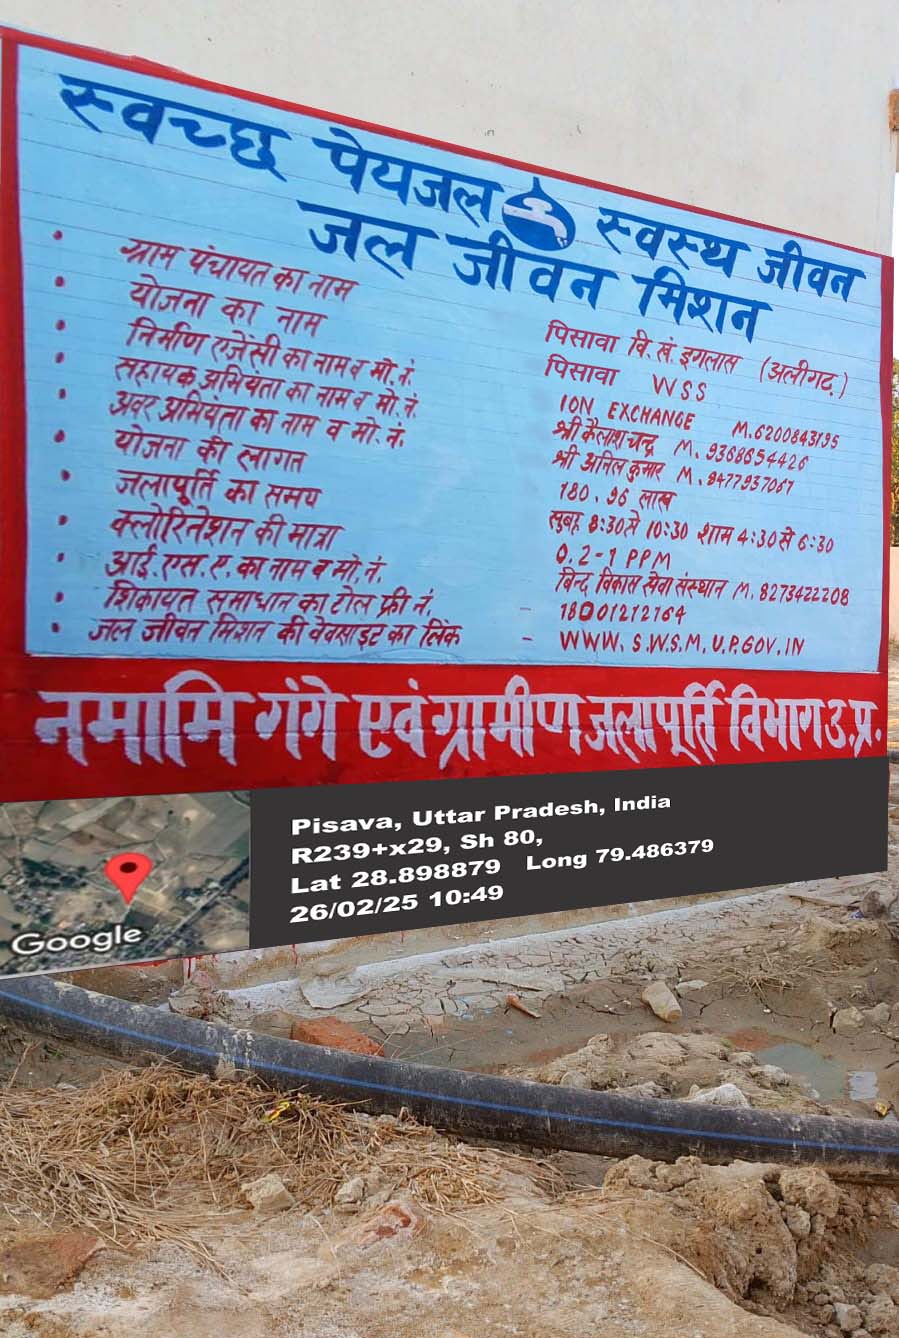 स्वच्छ पेयजल स्वस्थ जीवन
जल जीवन मिशन
• ग्राम पंचायत का नाम पिसावा वि. खं. इगलास (अलीगढ़)
• योजना का नाम पिसावा WSS
• निर्माण एजेंसी का नाम व मो. नं. ION EXCHANGE M.6200843195
• सहायक अभियंता का नाम व मो. नं. श्री कैलाश चन्द्र M. 9368654426
• अवर अभियंता का नाम व मो. नं. श्री अनिल कुमार M. 8477937067
• योजना की लागत 180.96 लाख
• जलापूर्ति का समय सुबह 8:30 से 10:30 शाम 4:30 से 6:30
• क्लोरिनेशन की मात्रा 0.2-1 PPM
• आई. एस. ए. का नाम व मो. नं. बिन्द विकास सेवा संस्थान M. 8273422208
• शिकायत समाधान का टोल फ्री नं. - 18001212164
• जल जीवन मिशन की वेवसाइट का लिंक - WWW. S.W.S.M. U.P.GOV.IN
नमामि गंगे एवं ग्रामीण जलापूर्ति विभाग उ.प्र.
Pisava, Uttar Pradesh, India
R239+x29, Sh 80,
Lat 28.898879 Long 79.486379
26/02/25 10:49
Google